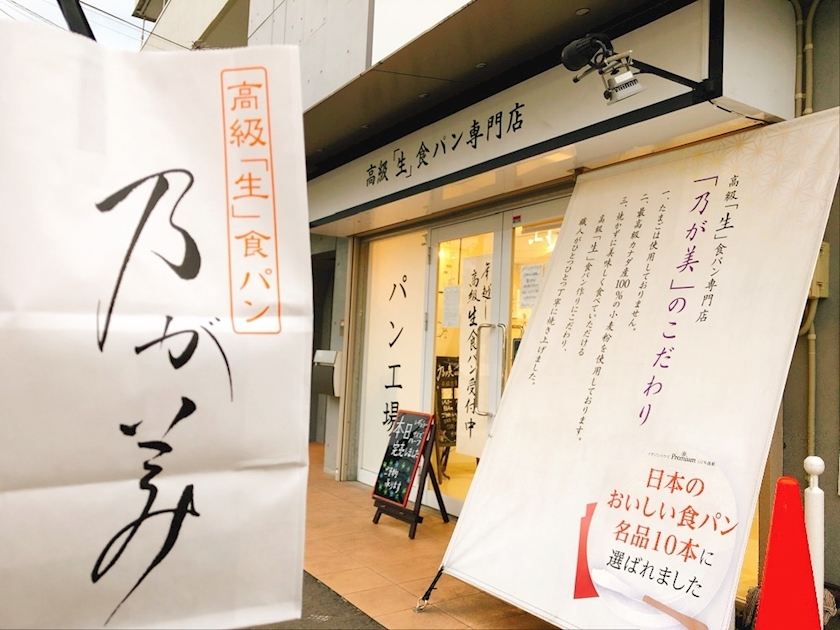 高級「生」食パン
乃が美
高級「生」食パン専門店
パン工場
年越し
高級生食パン受付中
本日
完売しました
ご予約
承ります
高級「生」食パン専門店
「乃が美」のこだわり
一、たまごは使用しておりません。
二、最高級カナダ産100%の小麦粉を使用しております。
三、焼かずに美味しく食べていただける
高級「生」食パン作りにこだわり、
職人がひとつひとつ丁寧に焼き上げました。
Premium
日本の
おいしい食パン
名品10本に
選ばれました